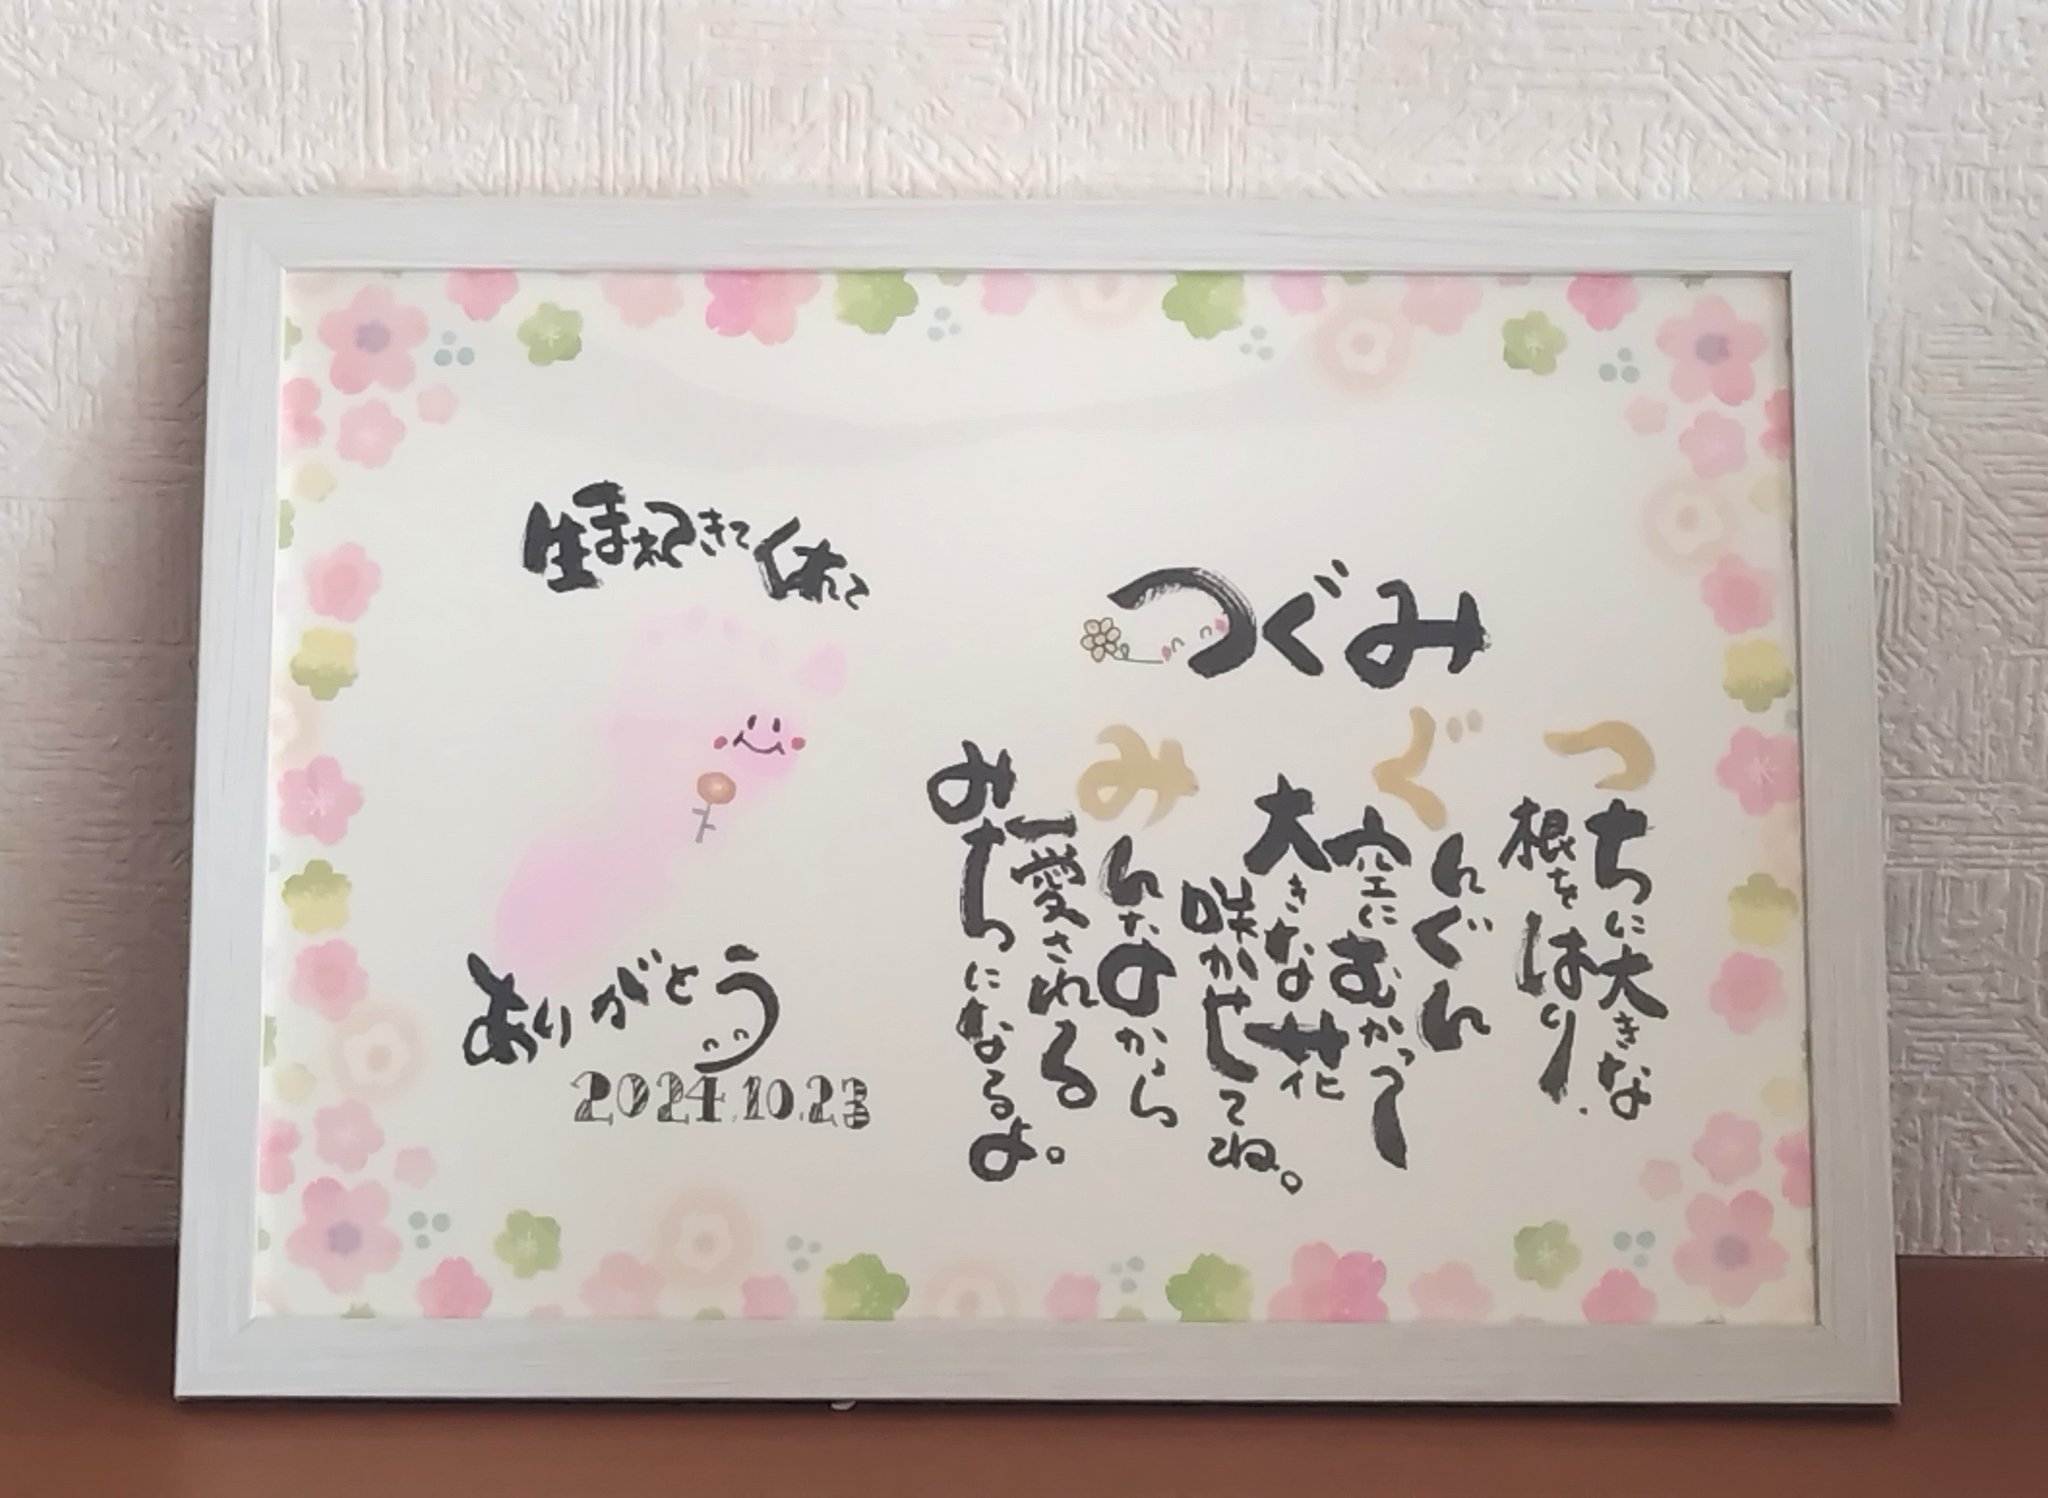 生まれてきてくれて
ありがとう
2024.10.23
つぐみ
つちに大きな
根をはり、
ぐんぐん
空にむかって
大きな花
咲かせてね。
みんなのから
愛される
みちになるよ。